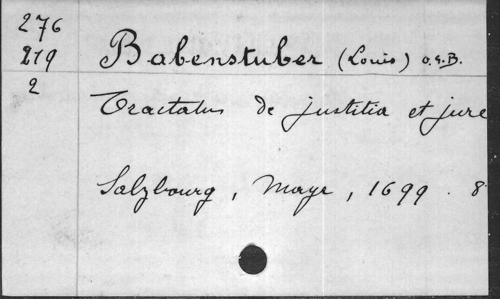 276
219 Babenstuber (Louis) O.S.B.
2 Tractatus de justitia et jure
Salzbourg, Mayr, 1699. 8